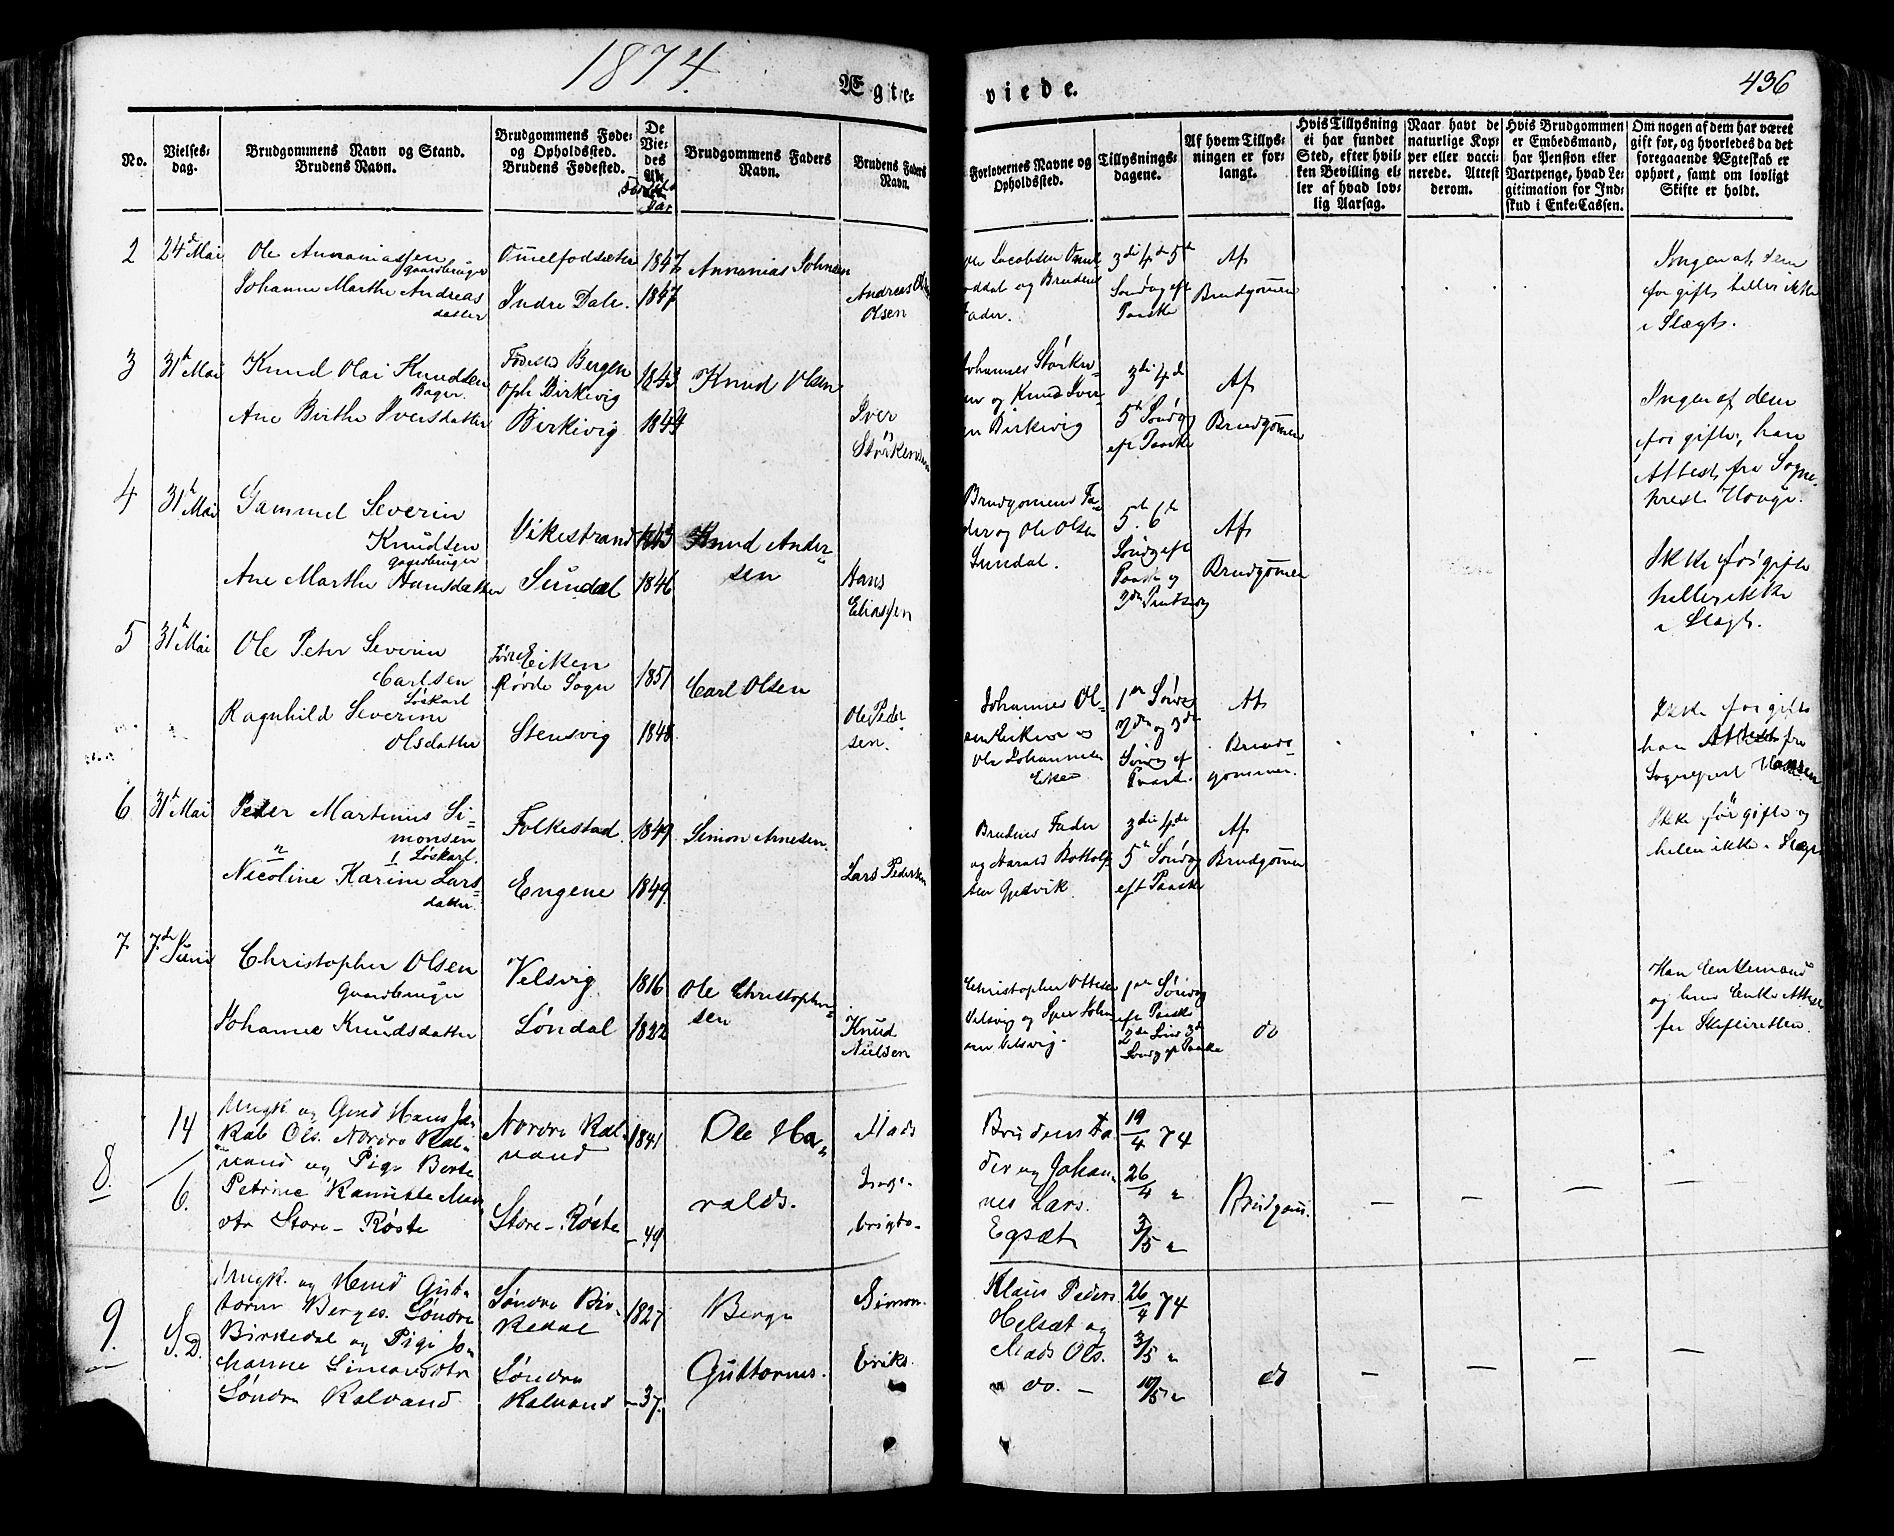 1874.
436
Ægte-
viede.
No.
Vielses-
dag.
Brudgommens Navn og Stand.
Brudens Navn.
Brudgommens Føde-
og Opholdssted.
Brudens Fødested.
De
Vie-
des
Brudgommens Faders
Navn.
Brudens Faders
Navn.
Forlovernes Navne og
Opholdssted.
Tillysnings-
dagene.
Af hvem Tillys-
ningen er for-
langt.
Hvis Tillysning
ei har fundet
Sted, efter hvil-
ken Bevilling el-
ler af hvad lov-
lig Aarsag.
Naar havt de
naturlige Kop-
per eller vacci-
nerede. Attest
derom.
Hvis Brudgommen
er Embedsmand,
har Pension eller
Vartpenge, hvad Le-
gitimation for Ind-
skud i Enke-Cassen.
Om nogen af dem har været
gift før, og hvorledes da det
foregaaende Ægteskab er
ophørt, samt om lovligt
Skifte er holdt.
2
24de Mai
Ole Annaniassen
gaardbruger
Johanne Marthe Andreas
datter
Indre Dale.
1847
1847
Annanias Johnsen
Andreas
Olsen
og Brudens
Fader.
3die 4de 5te
Søndag eft
Paaske
Af
Brudgomen
Ingen af dem
før gift heller ikke
i Slægt.
3
31te Mai
Knud Olai Knudsen
Bager.
Ane Birthe Iversdatter
Fødested Bergen
Oph Birkevig
Birkevig
1843
1844
Knud Olsen
Iver
Størkersen
Johannes Størkers
en og Knud Iver
Birkevig
3die 4de
5te Søndag
eft Paaske
Af
Brudgomen
Ingen af dem
før gifte, han
Attest fra Sogne-
prest Houge.
4
31te Mai
Gammel Severin
Knudsen
gaardbruger
Ane Marthe Hansdatter
Vikestrand
Sundal
1843
1846
Knud Ander-
sen
Hans
Eliassen
Brudgomens Fa-
der og Ole Olsen
Sundal.
5te 6te
Søndag eft
Paaske og
2den Pintsedag
Af
Brudgomen
Ikke før gifte
heller ikke
i Slægt.
5
31te Mai
Ole Peter Severin
Carlsen
Løskarl
Ragnhild Severine
Olsdatter
Eiken
Rovde Sogn
Stensvig
1851
1848
Carl Olsen
Ole Peder-
sen.
Johannes Ol-
Ole Johannesen
1ste Søndag
2den og 3die
Søndag eft
Paaske.
Af
Brud-
gommen.
Ikke før gifte
han Attest fra
Sogneprest Hansen
6
31te Mai
Peder Martinus Si-
monsen
Løskarl.
Nicoline Karine Lars-
datter.
Folkestad.
Engene
1849
1849.
Simon Arnesen.
Lars Pedersen
Brudens Fader
og Harald Bottolf
sen Gjetvik.
3die 4de
5te Søndag
eft Paaske
Af
Brudgomen
Ikke før gifte og
heller ikke i Slægt
7
7de Juni
Christopher Olsen
Gaardbruger
Johanne Knudsdatter
Velsvig
Løndal
1816
1822
Ole Christopher-
sen
Knud
Nielsen
Christopher Ottesen
Velsvig og
Velsvig.
1ste Søndag
eft Paaske
do
Han Enkemand
og hun Enke Attest
fra Skifteretten.
8.
14
6.
Ungk. og Gmd Hans Ja-
kob Ols. Nordre Kal-
vand og Pige Berte
Petrine Kanutte Mads
dtr Store-Røste
Nordre Kal-
vand
Store-Røste
1841
-49
Ole Ha-
ralds.
Mads
Inge-
brigts.
Brudens Fa-
der og Johan-
nes Lars.
Egsæt
19/4 74
26/4 "
3/5 "
Brudgom.
9.
S.D.
Ungk. og Hmd Gut-
torm Berges. Søndre
Birkedal og Pige Jo-
hanne Simonsdtr
Søndre Kalvand
Søndre Bir-
kedal
Søndre
Kalvand
1827
-37.
Berge
Guttorms.
Simon
Eriks.
Klaus Peders.
Helsæt og
Mads Ols.
" do. -
26/4 74
3/5 "
10/5 "
do